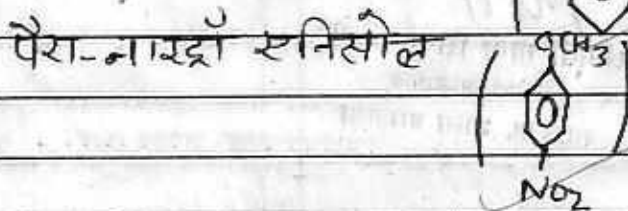 पैरा-नाइट्रॉ एनिसोल
OCH3
NO2